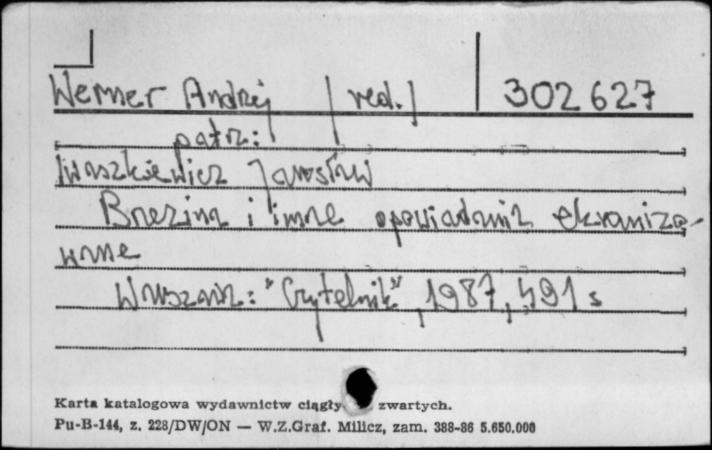 Werner Andrzej /red./ 302 627
patrz:
Iwaszkiewicz Jarosław
Brzezina i inne opowiadania ekranizo-
wane
Warszawa: "Czytelnik", 1987, 491 s
Karta katalogowa wydawnictw ciągły zwartych.
Pu-B-144, z. 228/DW/ON — W.Z.Graf. Milicz, zam. 388-86 5.650.000